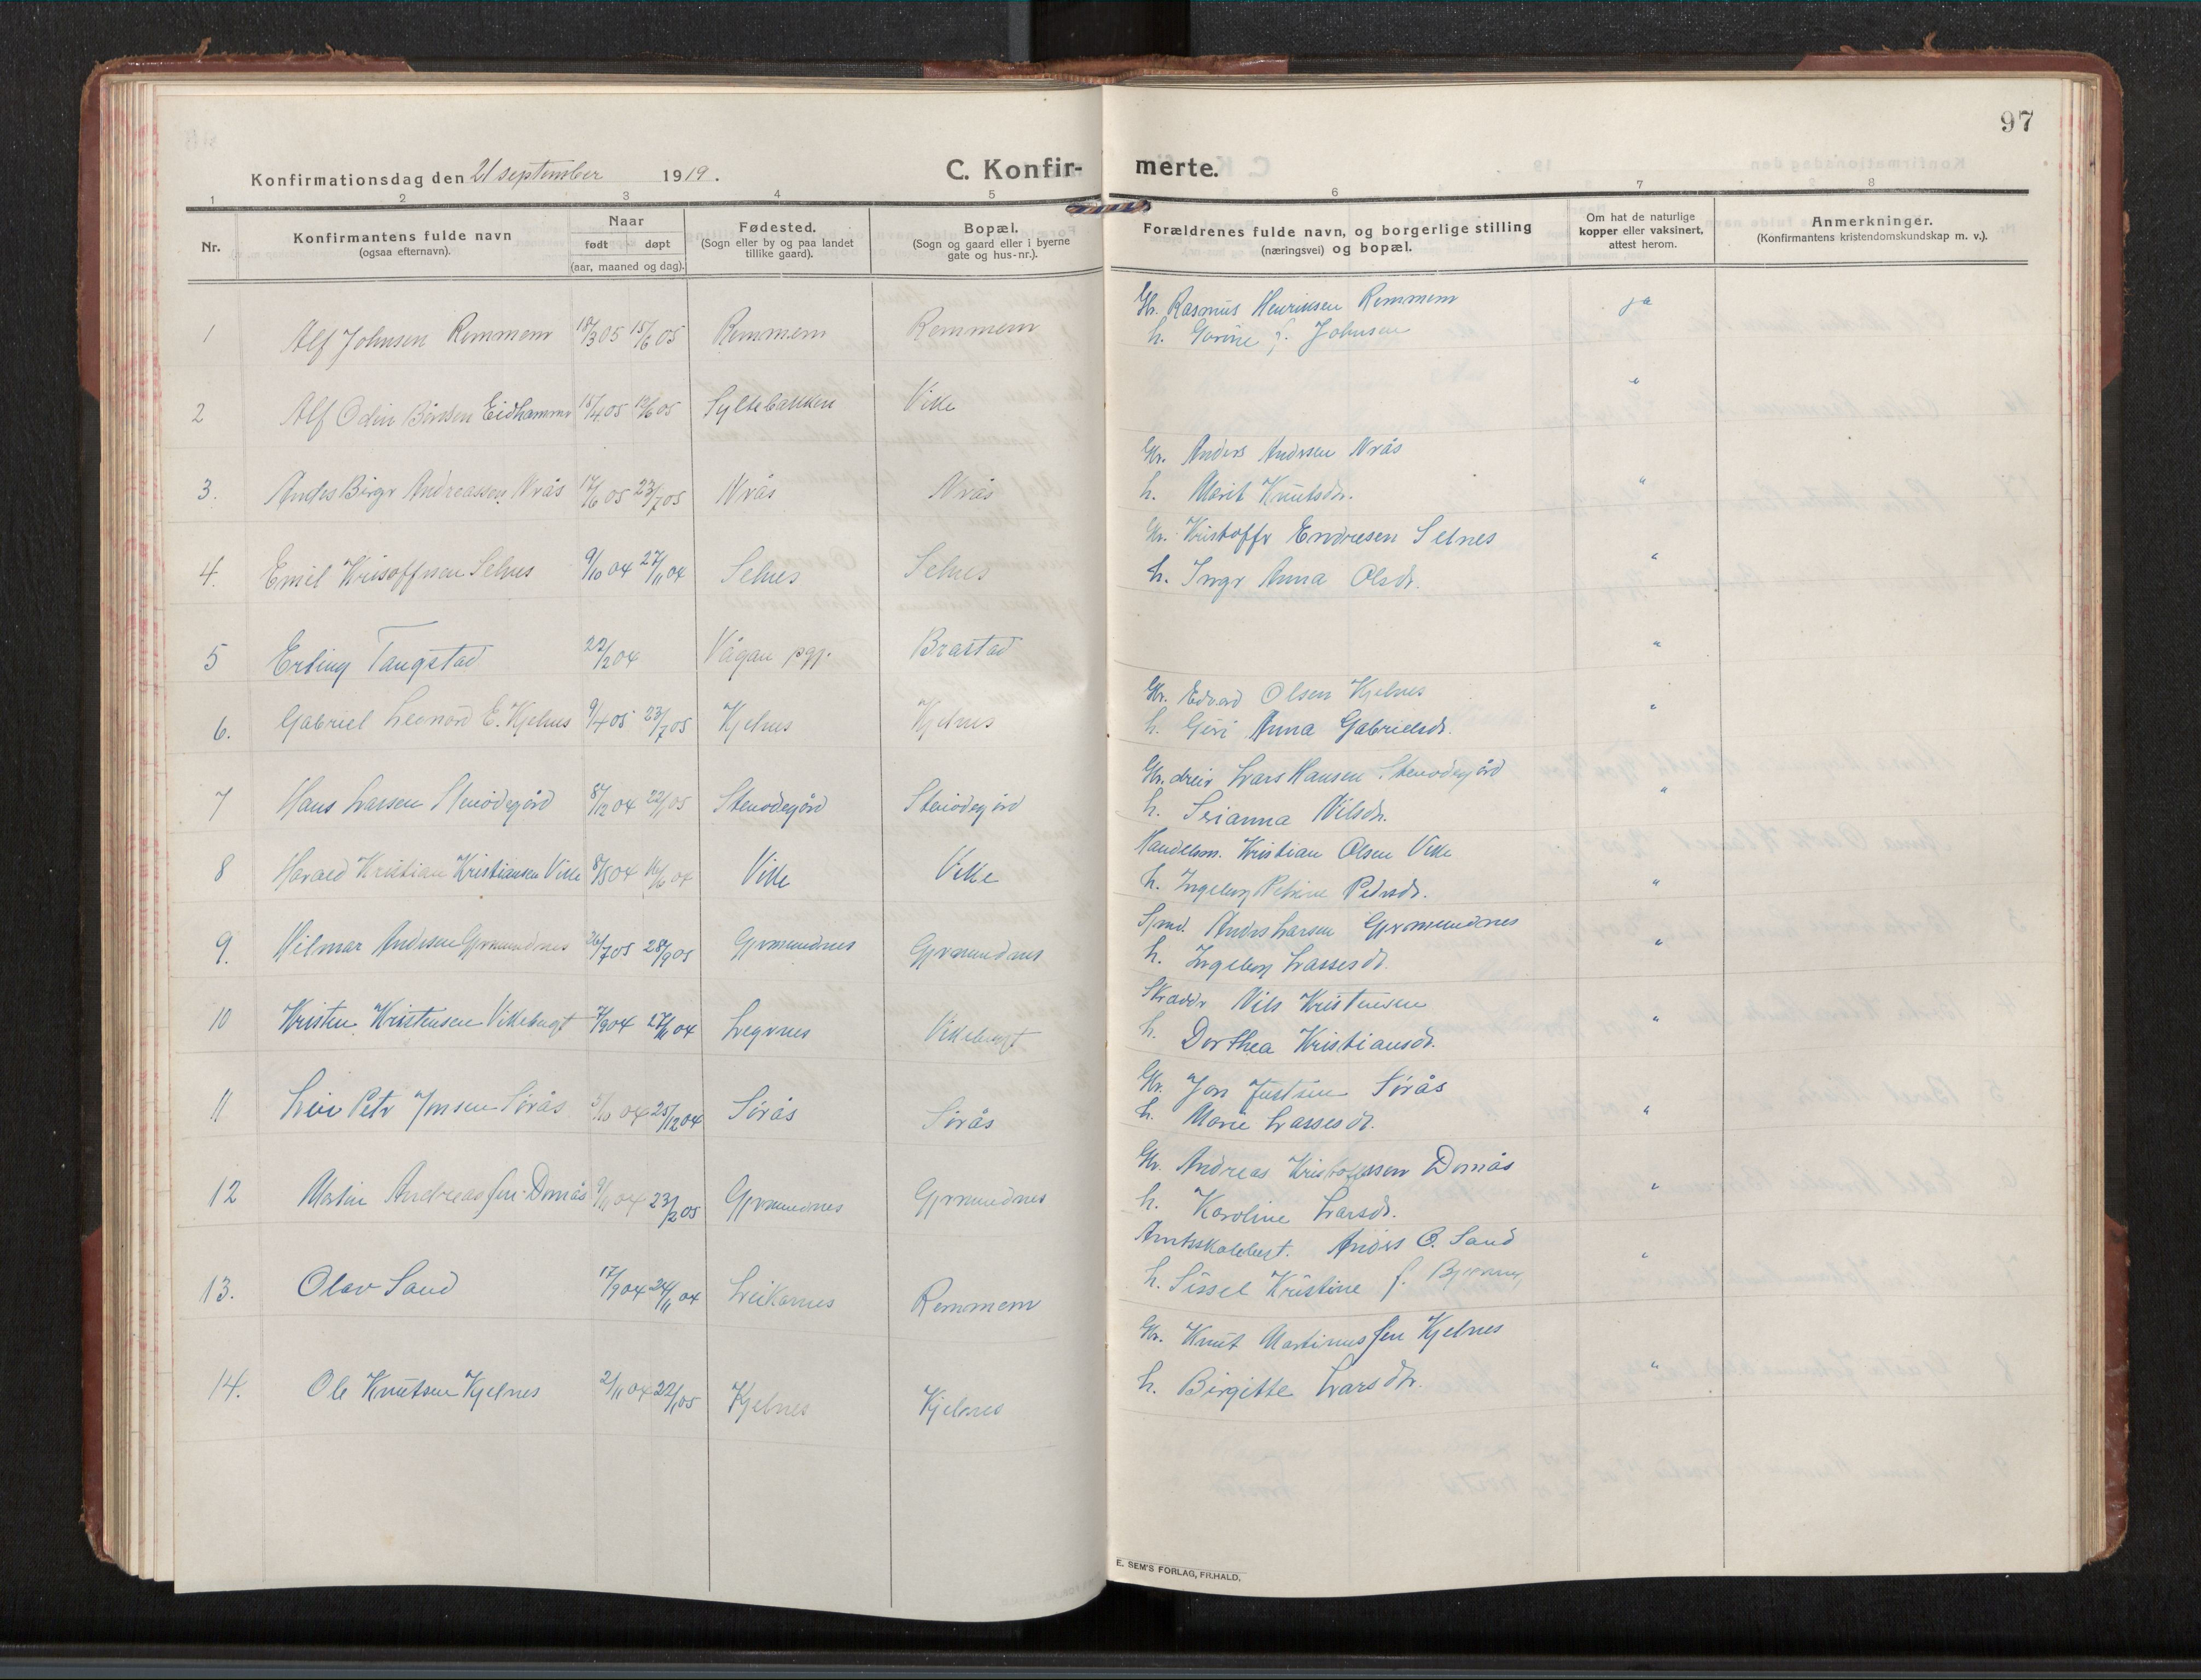 97
Konfirmationsdag den 21 september 1919.
C. Konfirmerte.
1 2 3 4 5 6 7 8
Nr.
Konfirmantens fulde navn
(ogsaa efternavn).
Naar
født døpt
(aar, maaned og dag).
Fødested.
(Sogn eller by og paa landet
tillike gaard).
Bopæl.
(Sogn og gaard eller i byerne
gate og hus-nr.).
Forældrenes fulde navn, og borgerlige stilling
(næringsvei) og bopæl.
Om hat de naturlige
kopper eller vaksinert,
attest herom.
Anmerkninger.
(Konfirmantens kristendomskundskap m. v.).
Gr. Rasmus Henriksen Remmem
1 Alf Johnsen Remmem 18/3 05 15/6 05 Remmem Remmem h. f. Johnsen ja
2 Alf Odin Eidhammer 05 05 Syltebakken Vike "
Gr. Anders Andersen Nrås
3. Anders Birger Andreassen Nrås 17/6 05 23/7 05 Nrås Nrås h. Marit Knutsdr. "
Gr. Kristoffer Endresen Selnes
4. Emil Selnes 9/10 04 27/11 04 Selnes Selnes h. Inger Anna Olsdr. "
5 Erling Tangstad 22/2 04 Vågan pgj. Brastad "
Gr. Edvard Olsen Kjelnes
6. Gabriel Leonord E. Kjelnes 9/4 05 23/7 05 Kjelnes Kjelnes h. Anna Gabrielsdr. "
Lars Hansen Stenødegård
7 Hans Larsen Stenødegård 8/12 04 22/1 05 Stenødegård Stenødegård h. Serianna Nilsdr. "
Handelsm. Kristian Olsen Vike
8 Harald Kristian Kristiansen Vike 8/5 04 04 Vike Vike h. Ingeborg Petrine Pedersdr. "
Anders Larsen Gjermundnes
9. Hilmar Andersen Gjermundnes 26/7 05 28/9 05 Gjermundnes Gjermundnes h. Ingeborg Lassesdr. "
Skrædder Nils Kristensen
10 Kristen Kristensen Vikebugt 7/9 04 27/11 04 Legernes Vikebugt h. Dorthea Kristiansdr. "
Gr. Jon Justsen Sørås
11 Peter Jonsen Sørås 04 25/12 04 Sørås Sørås h. Marie Lassesdr. "
Gr. Andreas Domås
12 Martin Andreassen Domås 9/11 04 23/2 05 Gjermundnes Gjermundnes h. Karoline Larsdr. "
Anders O. Sand
13. Olav Sand 17/9 04 24/11 04 Leikarnes Remmem h. Sissel Kristine f. "
Gr. Knut Martinussen Kjelnes
14. Ole Knutsen Kjelnes 2/11 04 22/1 05 Kjelnes Kjelnes h. Birgitte Larsdtr. "
E. SEM'S FORLAG, FR.HALD.